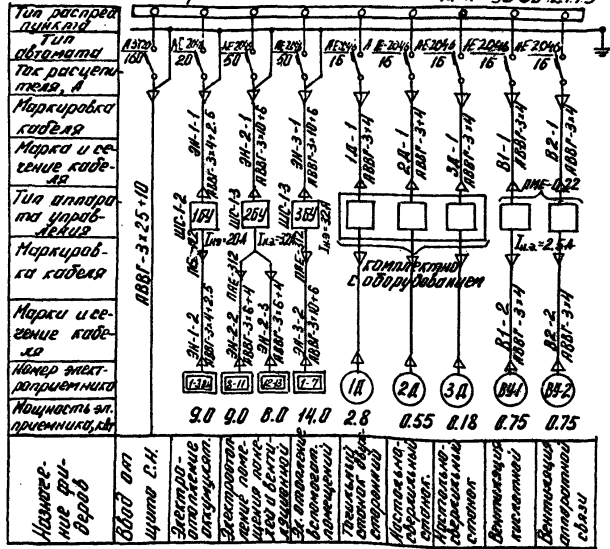 Тип распред.
пункта
Тип
автомата
Ток расцепи-
теля, А
Маркировка
кабеля
Марка и се-
чение кабе-
ля
Тип аппара-
та управ-
ления
Маркиров-
ка кабеля
Марки и се-
чение кабе-
ля
Номер элект-
роприемника
Мощность эл.
приемника, кВт
Назначе-
ние фи-
деров
А3720
160
АЕ2046
20
АЕ2046
50
АЕ2046
50
АЕ2046
16
АЕ2046
16
АЕ2046
16
АЕ2046
16
АЕ2046
16
АВВГ-3×25+10
ЭН-1-1
АВВГ-3×4+2.5
ЭН-2-1
АВВГ-3×10+6
ЭН-3-1
АВВГ-3×10+6
1Д-1
АВВГ-3×4
2Д-1
АВВГ-3×4
3Д-1
АВВГ-3×4
В1-1
АВВГ-3×4
В2-1
АВВГ-3×4
ШС-1-2
1БУ
ШС-1-3
2БУ
ШС-1-3
3БУ
Iн.э=20А
Iн.э=32А
Iн.э=32А
ПМЕ-022
Iн.э.=2.5А
комплектно
с оборудованием
ПМЕ-312
ПМЕ-312
ЭН-1-2
АВВГ-3×4+2.5
ЭН-2-2
АВВГ-3×6+4
ЭН-2-3
АВВГ-3×6+4
ЭН-3-2
АВВГ-3×10+6
В1-2
АВВГ-3×4
В2-2
АВВГ-3×4
8-11
12-13
1-7
1Д
2Д
3Д
ВУ-1
ВУ-2
9.0
9.0
8.0
14.0
2.8
0.55
0.18
0.75
0.75
Ввод от
щита С.Н.
Электро-
отопление
аккумулят.
Эл. отопление
вспомогат.
помещений
Точильный
станок двух-
сторонний
Настольно-
сверлильный
станок.
Настольно-
сверлильный
станок
Вентиляция
кислотной
Вентиляция
аппаратной
связи